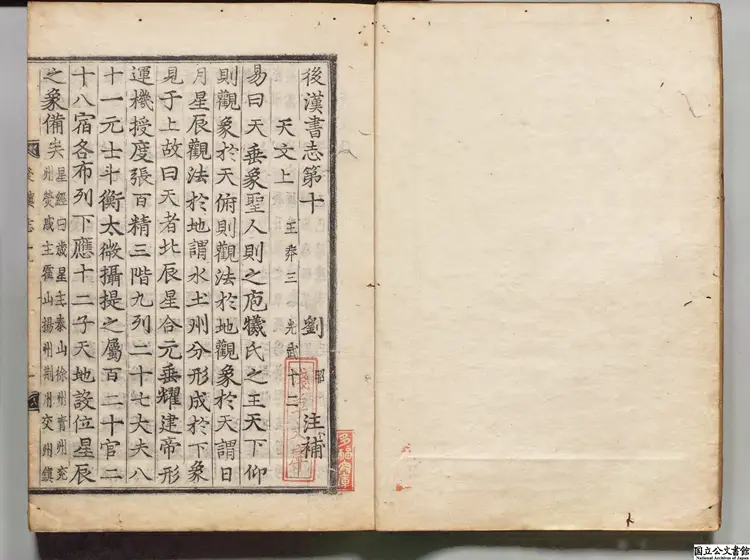 後漢書志第十 劉 昭 注補
天文上 王莽三 光武十二
易曰天垂象聖人則之庖犧氏之王天下仰
則觀象於天俯則觀法於地觀象於天謂日
月星辰觀法於地謂水土州分形成於下象
見于上故曰天者北辰星合元垂耀建帝形
運機授度張百精三階九列二十七大夫八
十一元士斗衡太微攝提之屬百二十官二
十八宿各布列下應十二子天地設位星辰
之象備矣
星經曰歲星主泰山徐州青州兗
州熒惑主霍山揚州荊州交州鎮
国立公文書館
National Archives of Japan